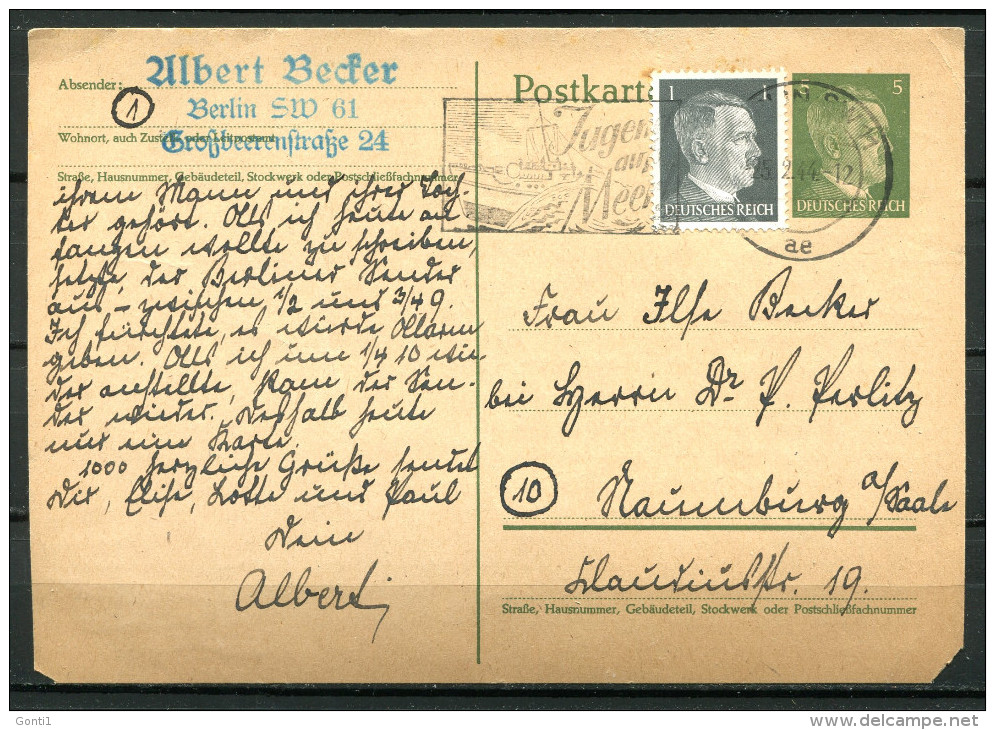 Absender:
Albert Becker
Berlin SW 61
Großbeerenstraße 24
1
Wohnort, auch Zustell- oder Leitpostamt
Straße, Hausnummer, Gebäudeteil, Stockwerk oder Postschließfachnummer
ihrem Mann und ihrer Toch-
ter gehört. Als ich heute an
fangen wollte zu schreiben,
setzte der Berliner Sender
aus – zwischen 1/2 und 3/4 9.
Ich fürchtete, es würde Alarm
geben. Als ich um 1/4 10 wie
der anstellte, kam der Sen-
der wieder. Deshalb heute
nur eine Karte.
1000 herzliche Grüße sendet
Dir, Elise, Lotte und Paul
Dein
Albert
Postkarte
Jugend
aufs
Meer
1
DEUTSCHES REICH
5 5
DEUTSCHES REICH
25.2.44.-12
ae
Frau Ilse Becker
bei Herrn Dr. P. Perlitz
10
Naumburg a/Saale
Claudiusstr. 19.
Straße, Hausnummer, Gebäudeteil, Stockwerk oder Postschließfachnummer
Gonti1
www.delcampe.net